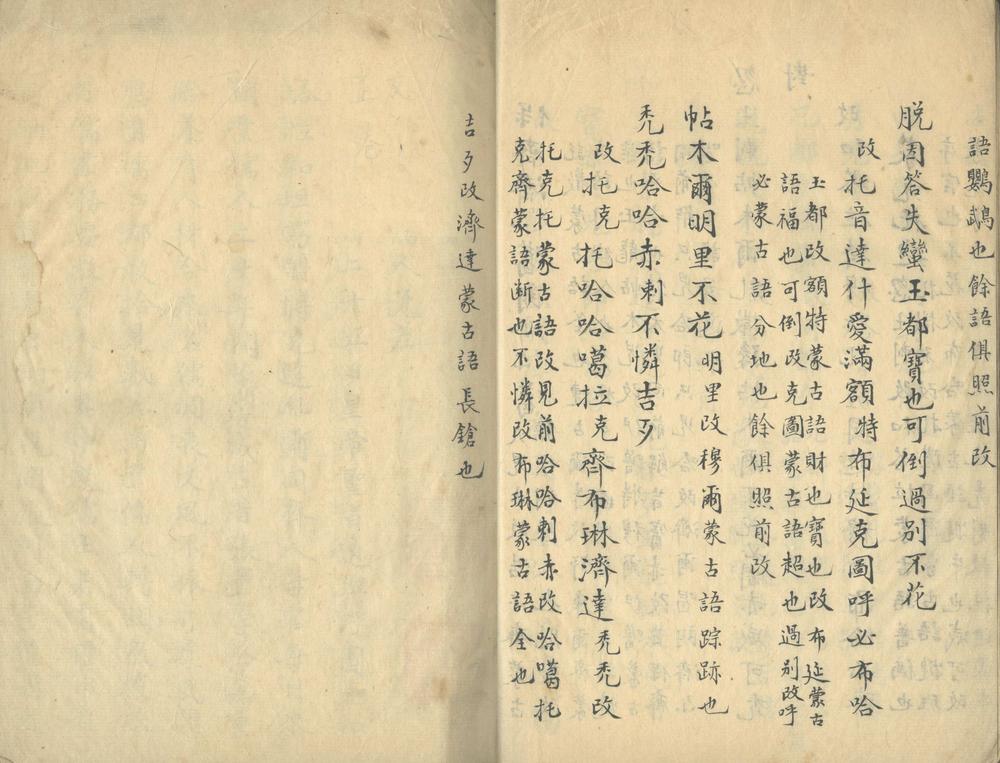 語鸚鵡也餘語俱照前改
脱因答失蠻玉都寶也可倒過別不花
改托音達什愛滿額特布延克圖呼必布哈
玉都改額特蒙古語財也寶也改布延蒙古
語福也可倒改克圖蒙古語超也過別改呼
必蒙古語分地也餘俱照前改
帖木爾明里不花明里改穆爾蒙古語踪跡也
禿禿哈哈赤剌不憐吉歹
改托克托哈哈噶拉克齊布琳濟達禿禿改
托克托蒙古語改見前哈哈剌赤改哈噶托
克齊蒙語断也不憐改布琳蒙古語全也
吉歹改濟達蒙古語長鎗也